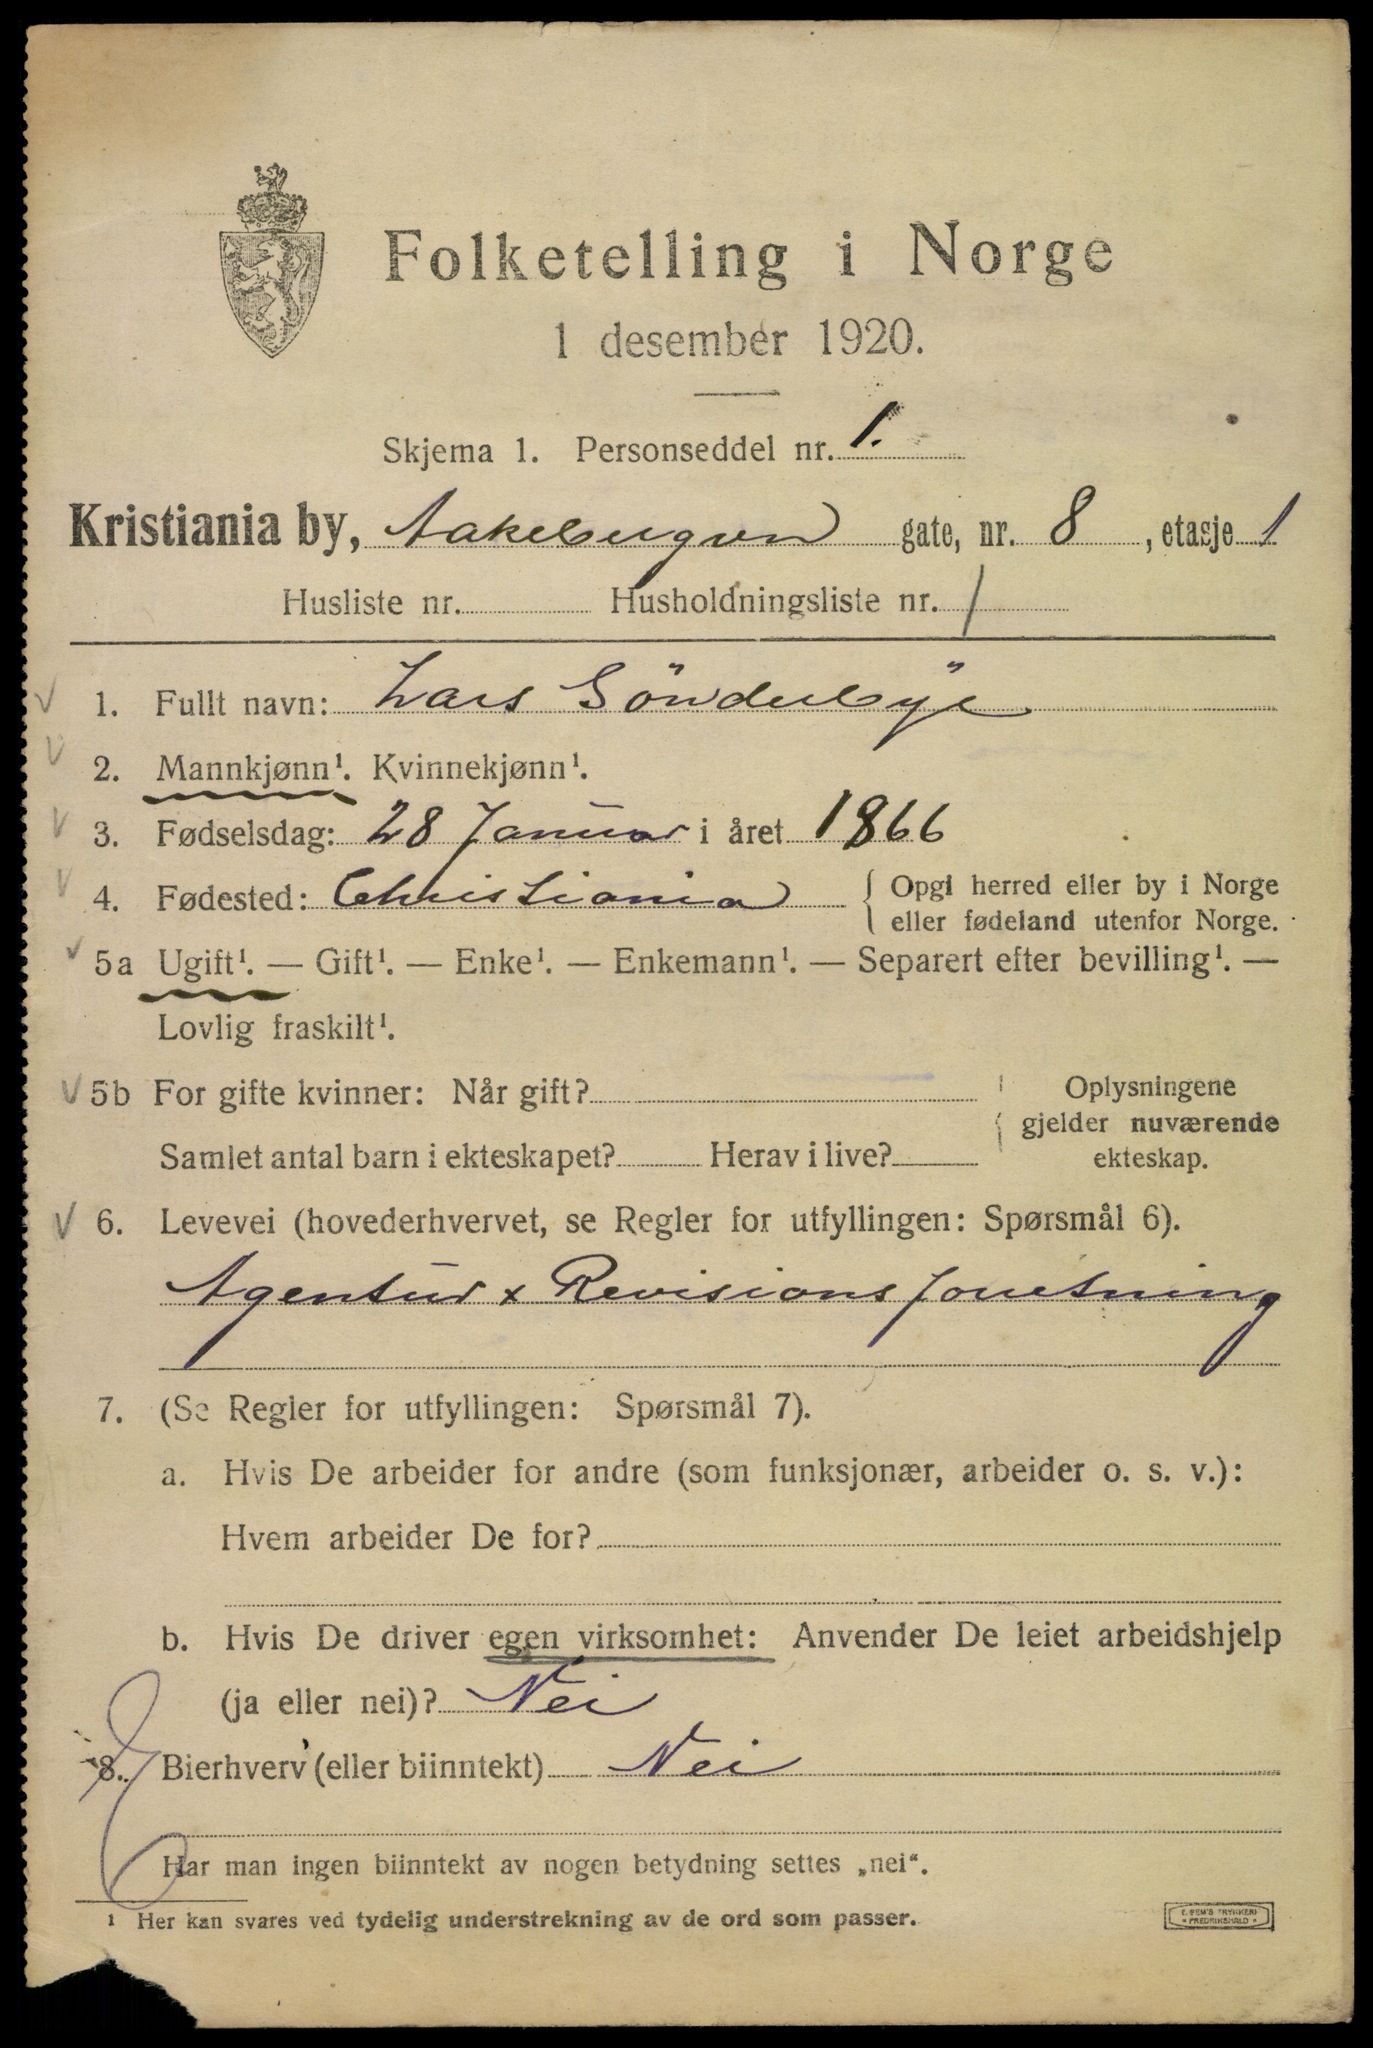 Folketelling i Norge
1 desember 1920.
Skjema 1. Personseddel nr. 1.
Kristiania by, Aakebergvn gate, nr. 8, etasje 1
Husliste nr. Husholdningsliste nr. 1
1. Fullt navn: Lars Sönderbÿe
2. Mannkjønn¹. Kvinnekjønn¹.
3. Fødselsdag: 28 Januar i året 1866
4. Fødested: Christiania { Opgi herred eller by i Norge
eller fødeland utenfor Norge.
5a Ugift¹. — Gift¹. — Enke¹. — Enkemann¹. — Separert efter bevilling¹. —
Lovlig fraskilt¹.
5b For gifte kvinner: Når gift? Oplysningene
gjelder nuværende
Samlet antal barn i ekteskapet? Herav i live? ekteskap.
6. Levevei (hovederhvervet, se Regler for utfyllingen: Spørsmål 6).
Agentur & Revisionsforretning
7. (Se Regler for utfyllingen: Spørsmål 7).
a. Hvis De arbeider for andre (som funksjonær, arbeider o. s. v.):
Hvem arbeider De for?
b. Hvis De driver egen virksomhet: Anvender De leiet arbeidshjelp
(ja eller nei)? Nei
8. Bierhverv (eller biinntekt) Nei
Har man ingen biinntekt av nogen betydning settes „nei“.
¹ Her kan svares ved tydelig understrekning av de ord som passer.
E. SEM'S TRYKKERI
FREDRIKSHALD